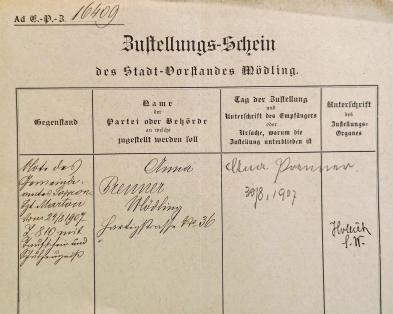 Ad E.-P.-Z. 16409
Zustellungs-Schein
des Stadt-Vorstandes Mödling.
Gegenstand
Name
der
Partei oder Behörde
an welche
zugestellt werden soll
Tag der Zustellung
und
Unterschrift des Empfängers
oder
Ursache, warum die
Zustellung unterblieben ist
Unterschrift
des
Zustellungs-
Organes
Note des
Gemeinde-
amtes
St. Marton
vom 22/8 1907
Z. 810 mit
Taufschein und
Schulzeugniß
Anna
Prenner
Mödling
Hartigstrasse No. 36
Anna Prenner
30/8, 1907